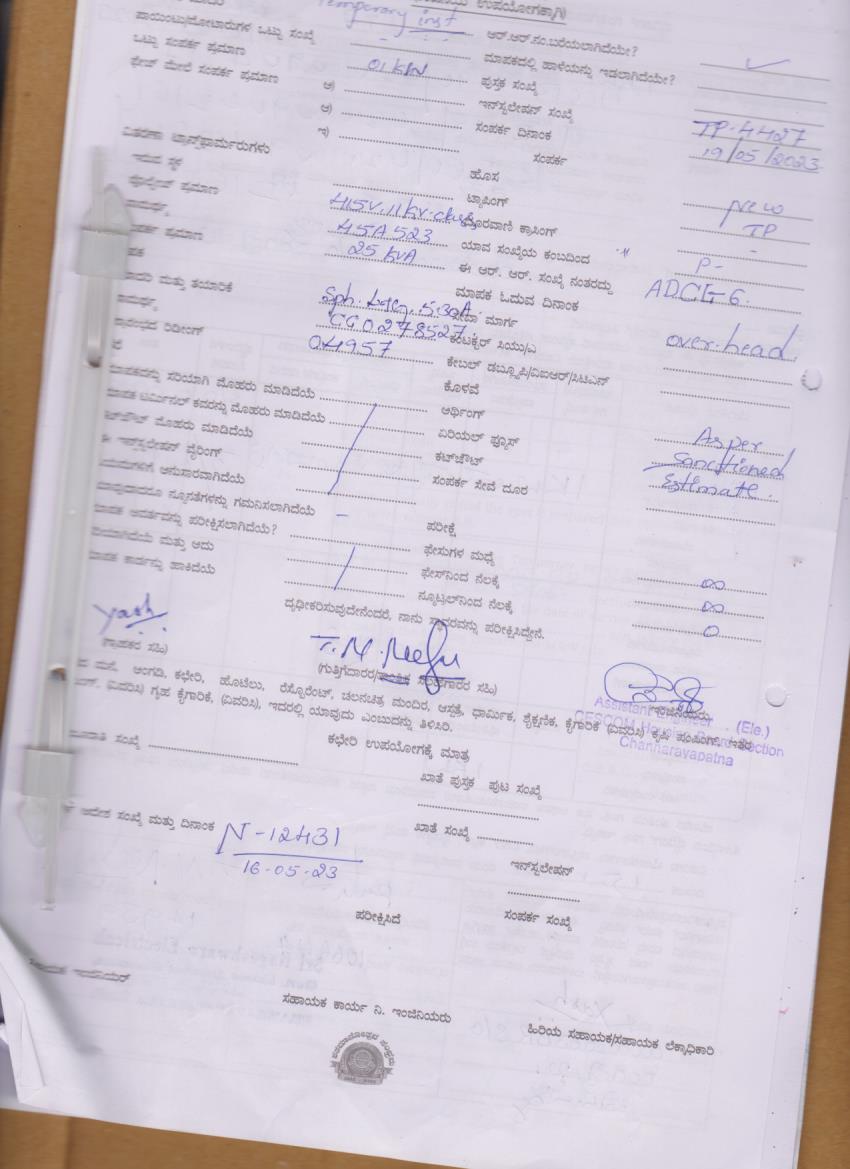 ಉಪಯೋಗಕ್ಕಾಗಿ)
Temporary inst
ಆರ್.ಆರ್.ನಂ.ಬರೆಯಲಾಗಿದೆಯೇ?
ಪಾಯಿಂಟು/ಮೋಟಾರುಗಳ ಒಟ್ಟು ಸಂಖ್ಯೆ
ಮಾಪಕದಲ್ಲಿ ಹಾಳೆಯನ್ನು ಇಡಲಾಗಿದೆಯೇ?
ಒಟ್ಟು ಸಂಪರ್ಕ ಪ್ರಮಾಣ 01 KW
ಪುಸ್ತಕ ಸಂಖ್ಯೆ
ಫೇಜ್ ಮೇಲೆ ಸಂಪರ್ಕ ಪ್ರಮಾಣ
ಇನ್‌ಸ್ಟಲೇಷನ್ ಸಂಖ್ಯೆ TP-4427
ಸಂಪರ್ಕ ದಿನಾಂಕ 19/05/2023
ಸಂಪರ್ಕ
ವಿತರಣಾ ಟ್ರಾನ್ಸ್‌ಫಾರ್ಮರುಗಳು
ಹೊಸ New
ಇರುವ ಸ್ಥಳ
ಟ್ಯಾಪಿಂಗ್ TP
ವೋಲ್ಟೇಜ್ ಪ್ರಮಾಣ 415V.11KV
ದೂರವಾಣಿ ಕ್ರಾಸಿಂಗ್ -
45A523
ಯಾವ ಸಂಖ್ಯೆಯ ಕಂಬದಿಂದ P-
ಪ್ರಮಾಣ 25 KVA
ಈ ಆರ್. ಆರ್. ಸಂಖ್ಯೆ ನಂತರದ್ದು
ಮಾಪಕ ಓದುವ ದಿನಾಂಕ
ಮತ್ತು ತಯಾರಿಕೆ
ಸೇವಾ ಮಾರ್ಗ over head
CG0278527
ಕಂಟಕ್ಟರ್ ಸಿಯು/ಎ
ರಿಡಿಂಗ್ 04957
ಕೇಬಲ್ ಡಬ್ಲ್ಯೂಪಿ/ವಿಐಆರ್/ಸಿಟಿಎನ್
ಕೊಳವೆ
ಮಾಪಕವನ್ನು ಸರಿಯಾಗಿ ಮೊಹರು ಮಾಡಿದೆಯೆ
ಆರ್ಥಿಂಗ್ As per
ಟರ್ಮಿನಲ್ ಕವರನ್ನು ಮೊಹರು ಮಾಡಿದೆಯೆ
ಏರಿಯಲ್ ಫ್ಯೂಸ್ Sanctioned
ಮೊಹರು ಮಾಡಿದೆಯೆ
ಕಟ್‌ಔಟ್ Estimate.
ಈ ಇನ್‌ಸ್ಟಲೇಷನ್ ವೈರಿಂಗ್
ಸಂಪರ್ಕ ಸೇವೆ ದೂರ
ಅನುಸಾರವಾಗಿದೆಯೆ
ನ್ಯೂನತೆಗಳನ್ನು ಗಮನಿಸಲಾಗಿದೆಯೆ -
ಪರೀಕ್ಷೆ
ಪರೀಕ್ಷಿಸಲಾಗಿದೆಯೆ?
ಫೇಸುಗಳ ಮಧ್ಯೆ ∞
ಮತ್ತು ಅದು
ಫೇಸ್‌ನಿಂದ ನೆಲಕ್ಕೆ ∞
ಮಾಪಕ ಕಾರ್ಡನ್ನು ಹಾಕಿದೆಯೆ
ನ್ಯೂಟ್ರಲ್‌ನಿಂದ ನೆಲಕ್ಕೆ 0
ದೃಢೀಕರಿಸುವುದೇನೆಂದರೆ, ನಾನು ಪರೀಕ್ಷಿಸಿದ್ದೇನೆ.
yash
(ಗ್ರಾಹಕರ ಸಹಿ)
(ಗುತ್ತಿಗೆದಾರರ/
ಇಂಜಿನಿಯರು
Assistant (Ele.)
CESCOM
Channarayapatna
ಮನೆ, ಅಂಗಡಿ, ಕಛೇರಿ, ಹೊಟೆಲು, ರೆಸ್ಟೋರೆಂಟ್, ಚಲನಚಿತ್ರ ಮಂದಿರ, ಆಸ್ಪತ್ರೆ, ಧಾರ್ಮಿಕ, ಶೈಕ್ಷಣಿಕ, ಕೈಗಾರಿಕೆ (ವಿವರಿಸಿ) ಕೃಷಿ ಪಂಪಿಂಗ್, ಇತರ
(ವಿವರಿಸಿ) ಗೃಹ ಕೈಗಾರಿಕೆ, (ವಿವರಿಸಿ), ಇದರಲ್ಲಿ ಯಾವುದು ಎಂಬುದನ್ನು ತಿಳಿಸಿರಿ.
ಕಛೇರಿ ಉಪಯೋಗಕ್ಕೆ ಮಾತ್ರ
ಸಂಖ್ಯೆ
ಖಾತೆ ಪುಸ್ತಕ ಪುಟ ಸಂಖ್ಯೆ
ಆದೇಶ ಸಂಖ್ಯೆ ಮತ್ತು ದಿನಾಂಕ N-12431
ಖಾತೆ ಸಂಖ್ಯೆ
16-05-23
ಇನ್‌ಸ್ಟಲೇಷನ್
ಪರೀಕ್ಷಿಸಿದೆ
ಸಂಪರ್ಕ ಸಂಖ್ಯೆ
ಸಹಾಯಕ ಇಂಜಿನಿಯರ್
ಸಹಾಯಕ ಕಾರ್ಯ ನಿ. ಇಂಜಿನಿಯರು
ಹಿರಿಯ ಸಹಾಯಕ/ಸಹಾಯಕ ಲೆಕ್ಕಾಧಿಕಾರಿ